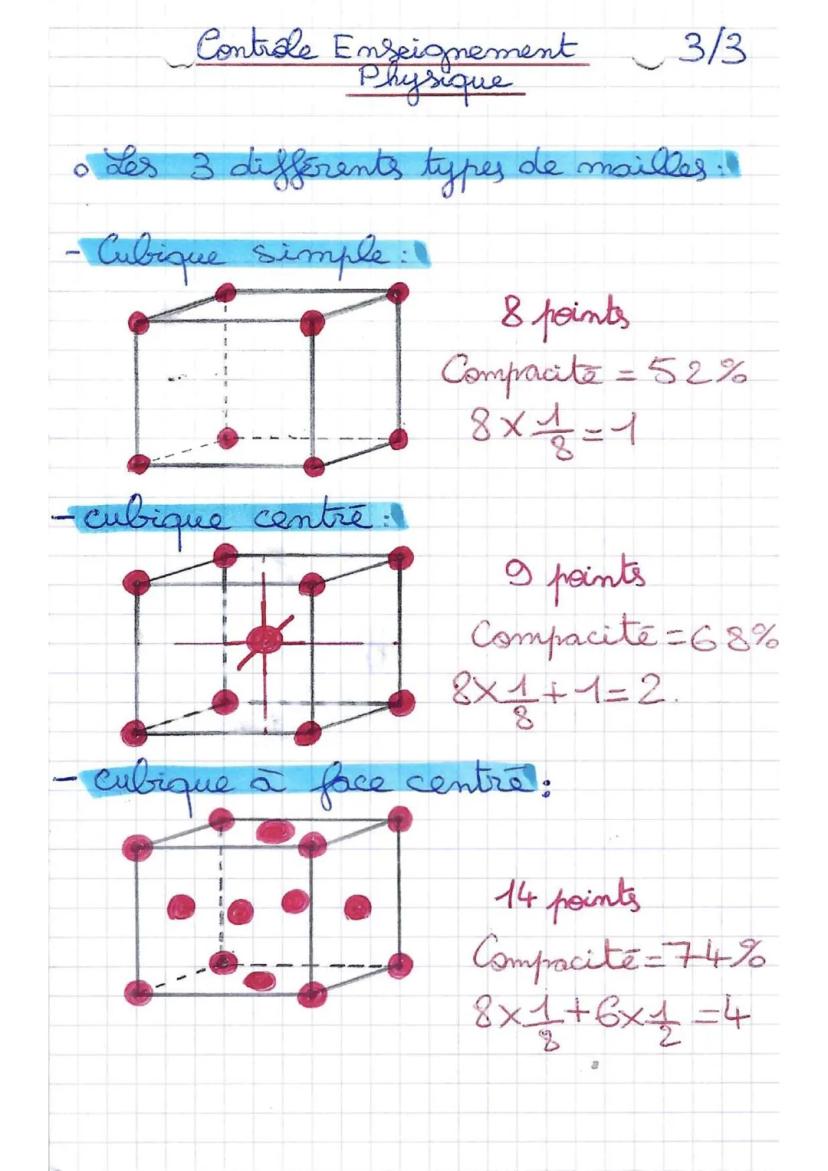 Contrôle Enseignement 3/3
Physique
Les 3 différents types de mailles :
- Cubique simple :
8 points
Compacité = 52%
8 × 1/8 = 1
- cubique centré :
9 points
Compacité = 68%
8 × 1/8 + 1 = 2.
- cubique à face centré :
14 points
Compacité = 74%
8 × 1/8 + 6 × 1/2 = 4